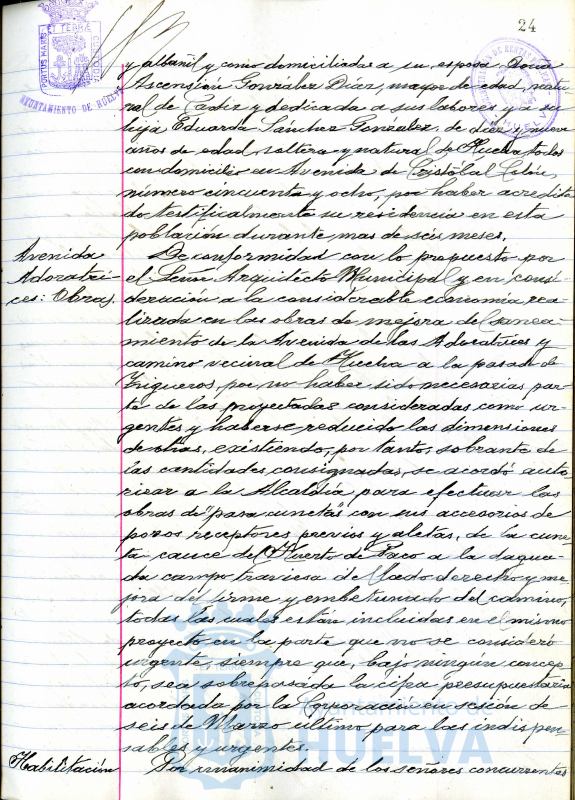 24
PORTUS MARIS ET TERRE CUSTODIA
AYUNTAMIENTO DE HUELVA
y albañil y como domiciliadas a su esposa Doña
Ascensión González Díaz, mayor de edad, natu-
ral de Cádiz y dedicada a sus labores y a su
hija Eduarda Sánchez González, de diez y nueve
años de edad, soltera y natural de Huelva todos
con domicilio en Avenida de Cristóbal Colón,
número cincuenta y ocho, por haber acredita-
do testificalmente su residencia en esta
población durante mas de seis meses.
Avenida
Adoratri-
ces: Obras.
De conformidad con lo propuesto por
el Señor Arquitecto Municipal y en consi-
deración a la considerable economía rea-
lizada en las obras de mejora de Sanea-
miento de la Avenida de las Adoratrices y
camino vecinal de Huelva a la pasada de
Trigueros, por no haber sido necesarias par-
te de las proyectadas consideradas como ur-
gentes y haberse reducido las dimensiones
de otras, existiendo, por tanto, sobrante de
las cantidades consignadas, se acordó auto-
rizar a la Alcaldía para efectuar las
obras de "pasa cunetas" con sus accesorios de
pozos receptores previos y aletas, de la cune-
ta cauce del Huerto de Paco a la
campo traviesa del lado derecho y me-
jora del firme y embetunado del camino,
todas las cuales están incluidas en el mismo
proyecto en la parte que no se consideró
urgente, siempre que, bajo ningún concep-
to, sea sobrepasada la cifra presupuestaria
acordada por la Corporación en sesión de
seis de Marzo último para las indispen-
sables y urgentes.
Habilitación
Por unanimidad de los señores concurrentes
Ayuntamiento de
HUELVA